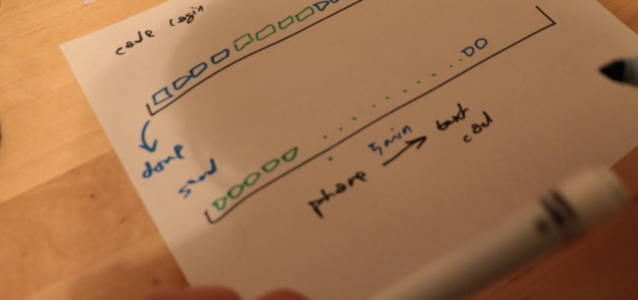 code login
done
send
phone 5 min text
cod